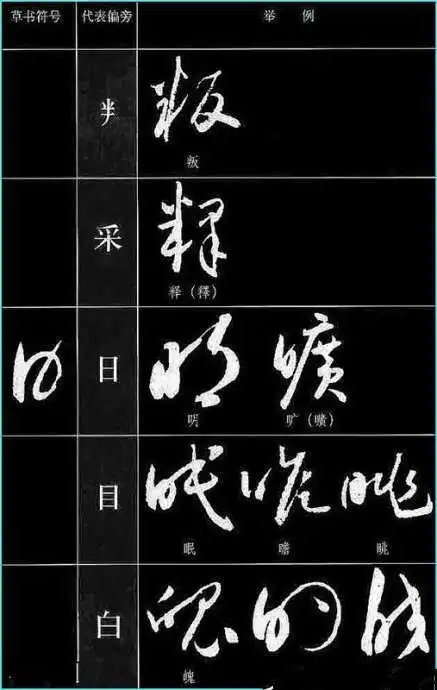 草书符号 代表偏旁 举 例
叛
采
释（釋）
日
明 旷（曠）
目
眠 瞻 眺
白
魄 的